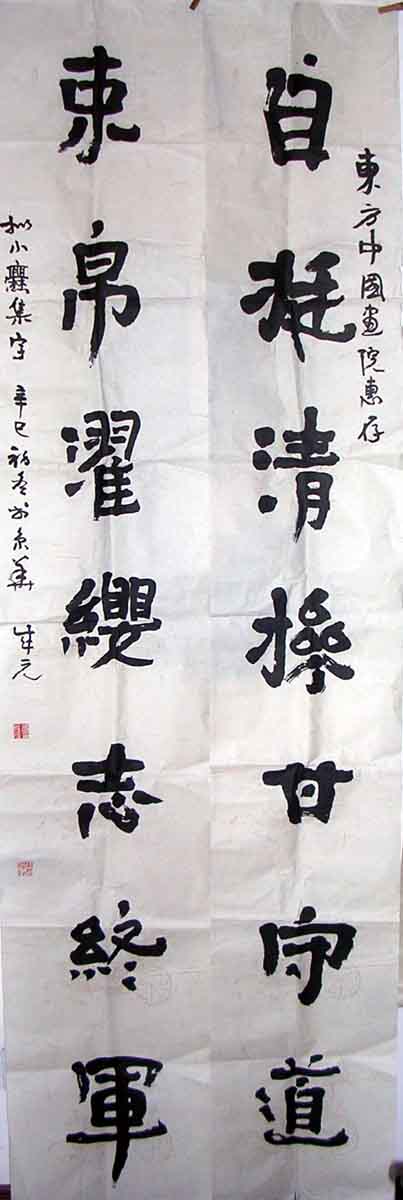 東方中國畫院惠存
自挺清操甘守道
束帛濯纓志終軍
小爨集字 辛巳 於京華